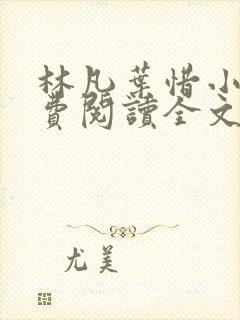 林凡葉惜小
費閱讀全文
尤美